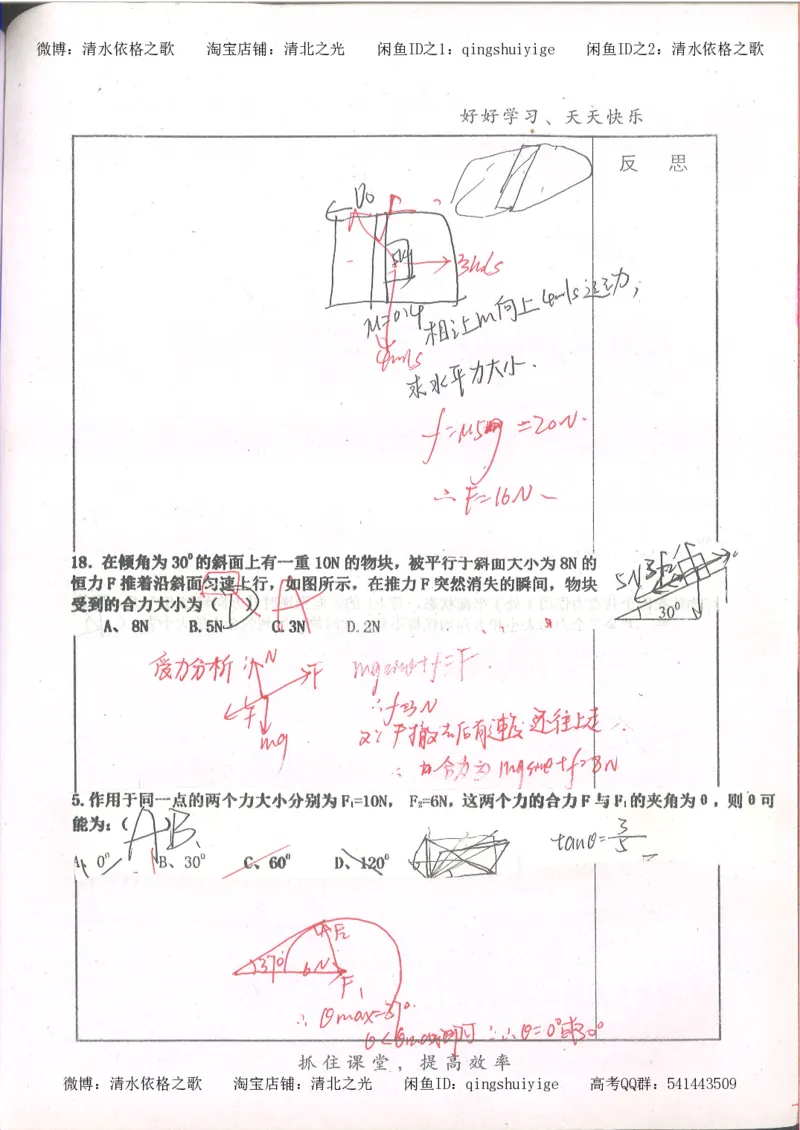 微博：清水依格之歌　　淘宝店铺：清北之光　　闲鱼ID之1：qingshuiyige　　闲鱼ID之2：清水依格之歌
好好学习、天天快乐
反　思
V₀
5kg
3m/s
μ=0.4
相让m向上4m/s运动，
4m/s
求水平力大小.
f=μ5g=20N.
∴F=16N
18．在倾角为 30⁰的斜面上有一重 10N 的物块，被平行于斜面大小为 8N 的
恒力 F 推着沿斜面匀速上行，如图所示，在推力 F 突然消失的瞬间，物块
受到的合力大小为（　）
A、 8N　　B.5N　　C.3N　　D.2N
A
5N 3
30⁰
受力分析：N F f mg
mgsinθ+f=F.
∴f=3N
又∵F撤去后有速度还往上走
∴合力为mgsinθ+f=8N
5.作用于同一点的两个力大小分别为 F₁=10N， F₂=6N，这两个力的合力 F 与 F₁的夹角为 θ ，则 θ 可
能为：（　）
AB
A、0⁰　　B、30⁰　　C、60⁰　　D、120⁰
tanθ=3/5
F₂
37⁰
6N
F₁
∴θmax=37⁰.
θ<θmax即可 ∴θ=0⁰或30⁰
抓住课堂，提高效率
微博：清水依格之歌　　淘宝店铺：清北之光　　闲鱼ID：qingshuiyige　　高考QQ群：541443509